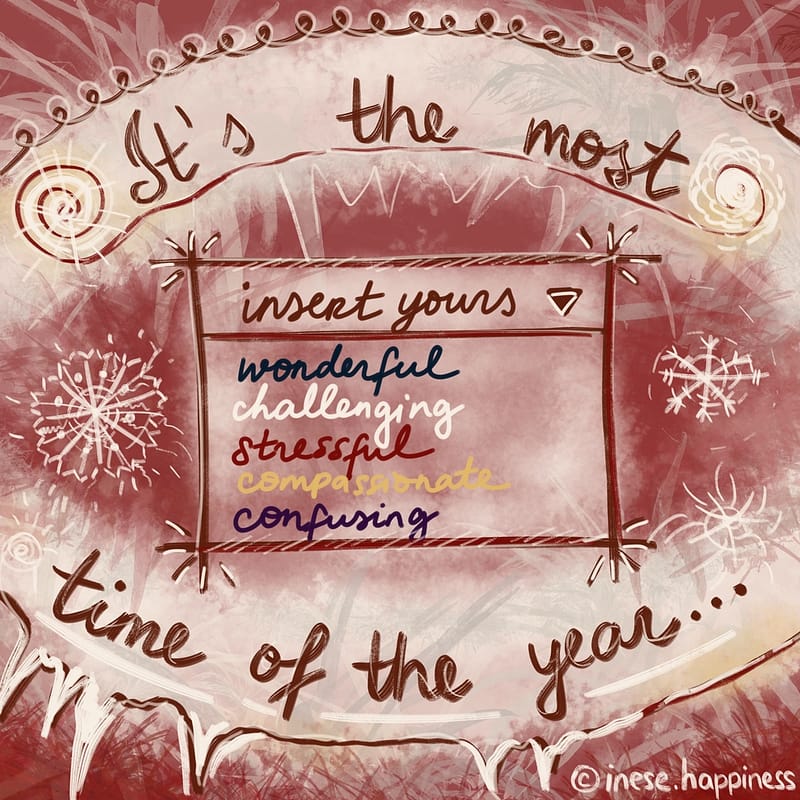 It's the most
insert yours
wonderful
challenging
stressful
compassionate
confusing
time of the year...
© inese.happiness